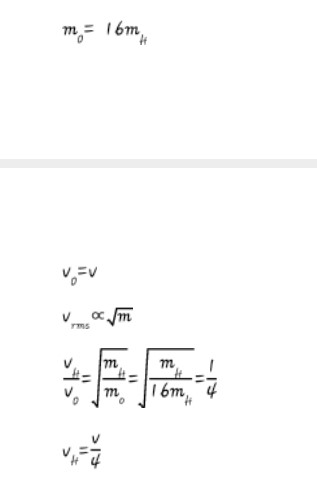 m_o = 16m_H
v_o = v
v_rms ∝ √m
v_H/v_o = √(m_H/m_o) = √(m_H/16m_H) = 1/4
v_H = v/4